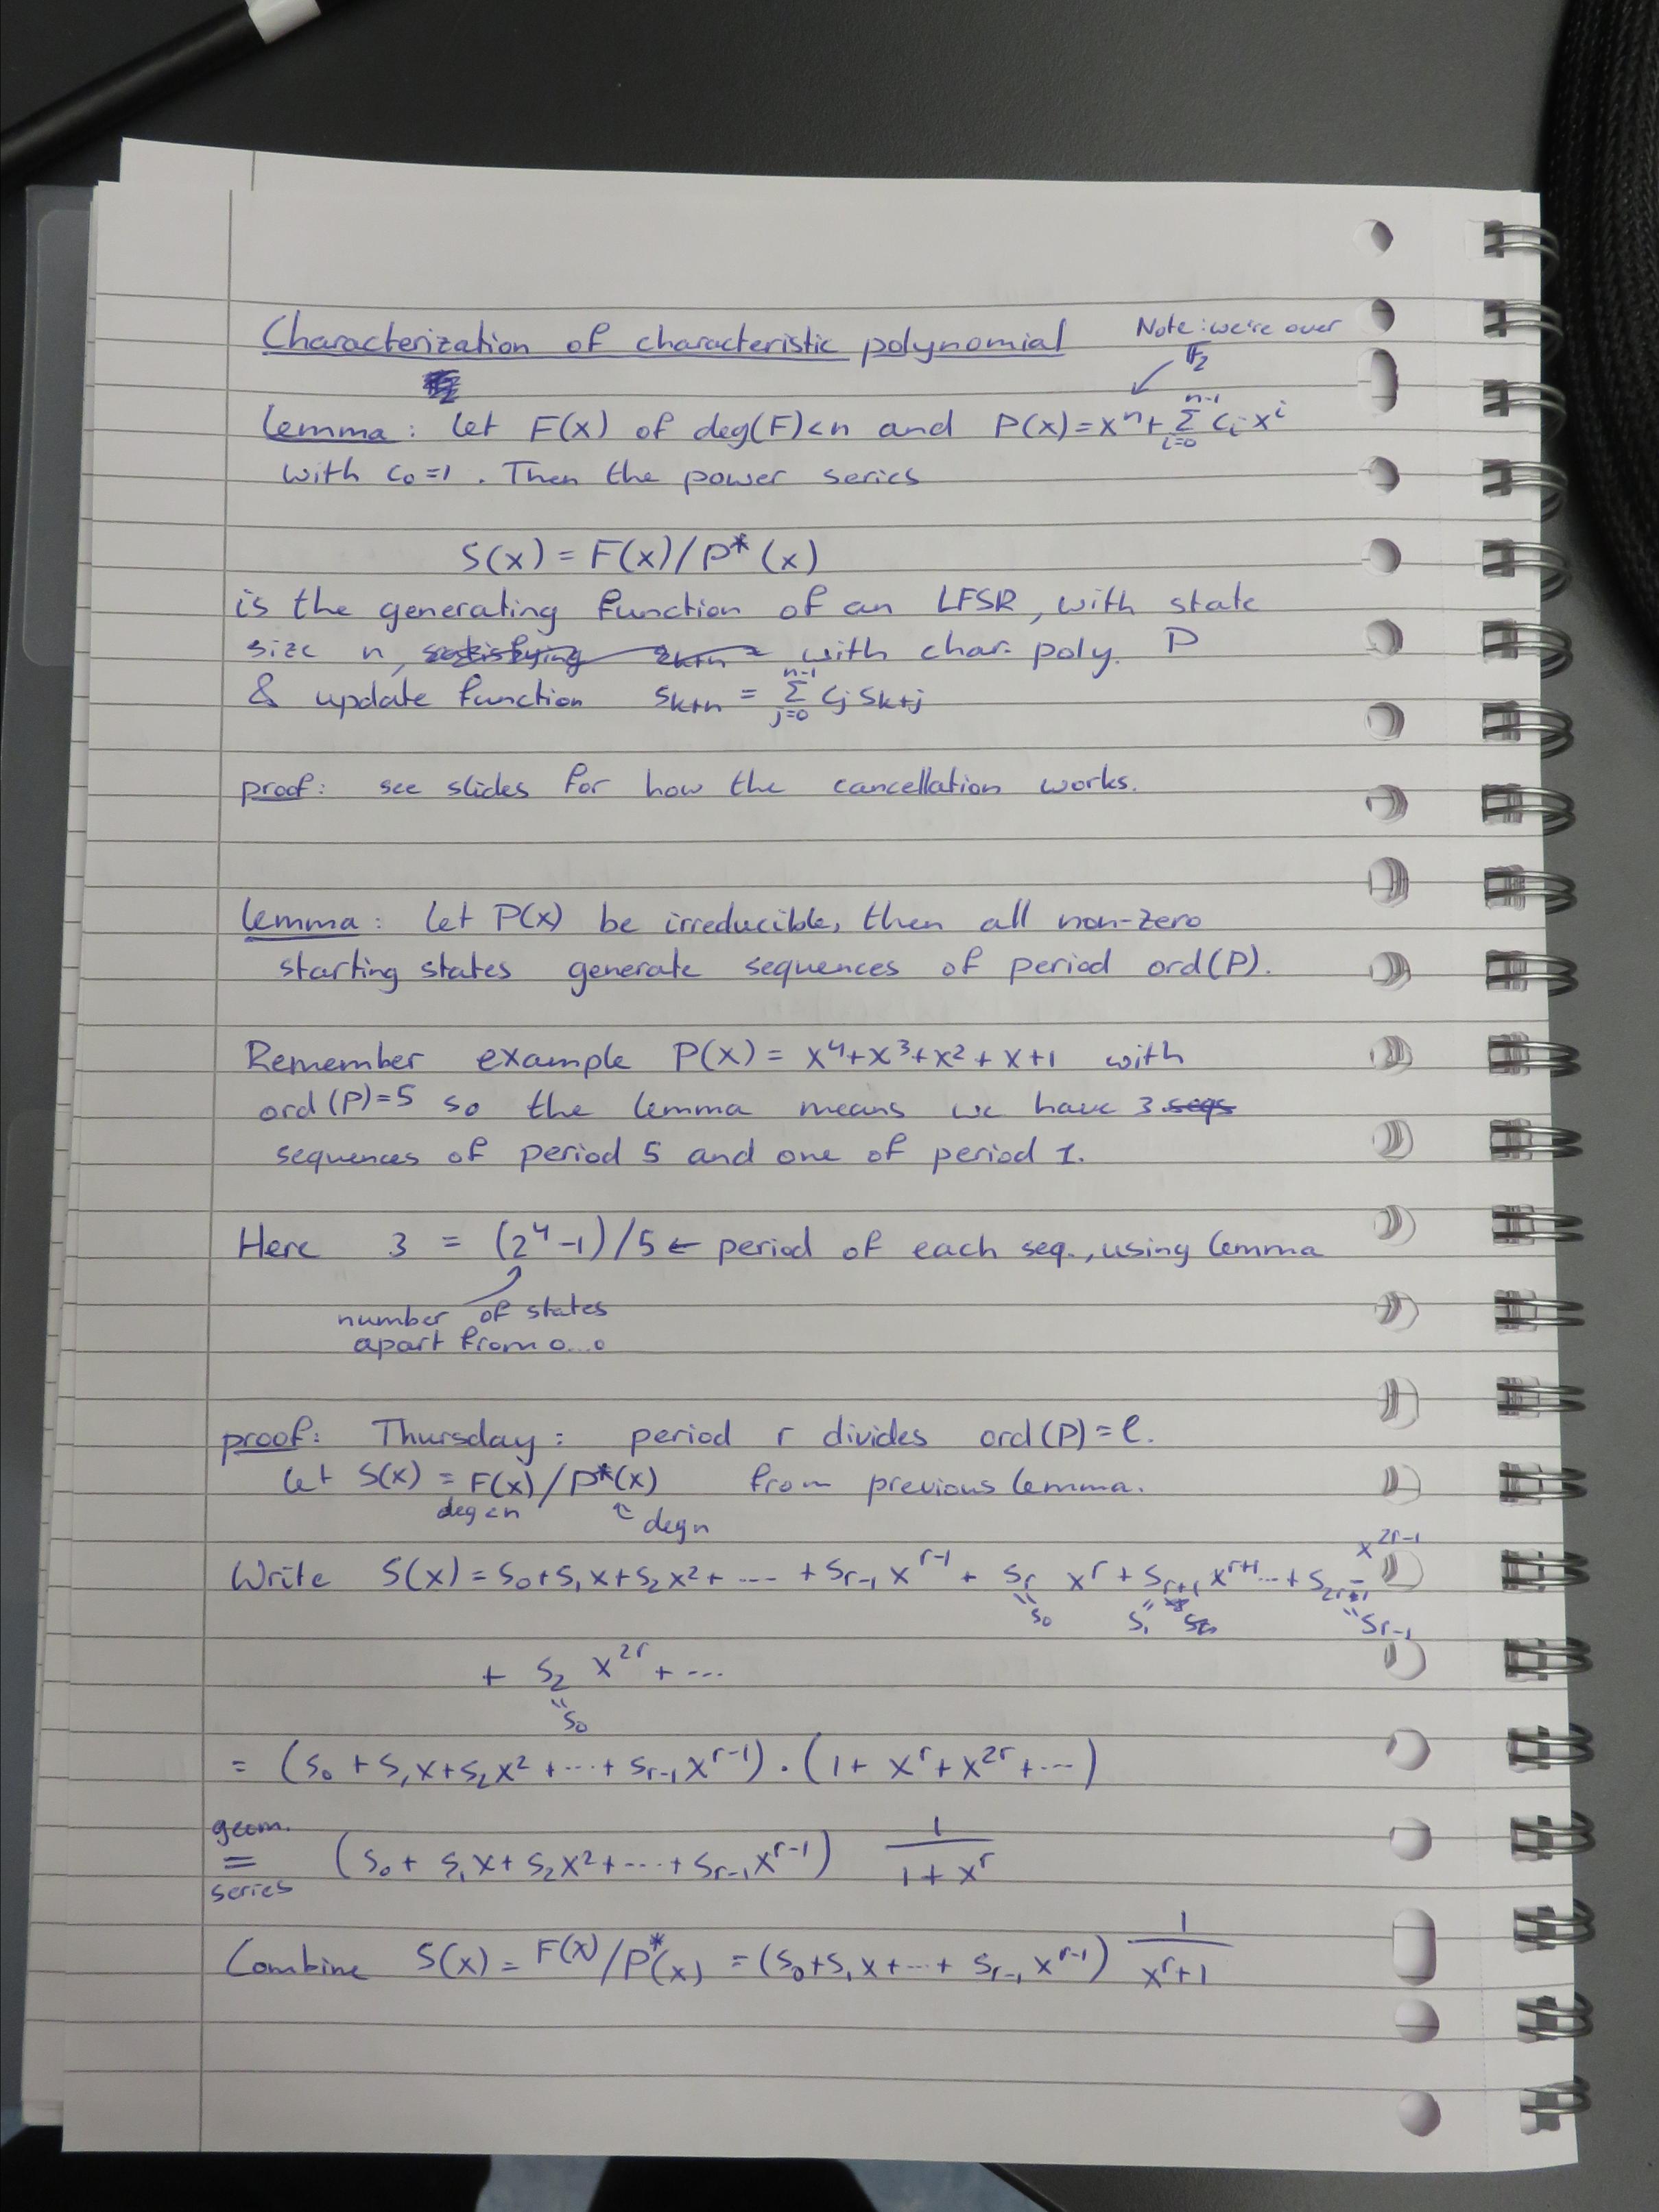 Characterization of characteristic polynomial
Note: we're over
F₂
Lemma: Let F(x) of deg(F)<n and P(x)=xⁿ+ Σ_{i=0}^{n-1} cᵢxⁱ
with c₀=1. Then the power series
S(x) = F(x)/P*(x)
is the generating function of an LFSR, with state
size n, with char. poly. P
& update function s_{k+n} = Σ_{j=0}^{n-1} c_j s_{k+j}
proof: see slides for how the cancellation works.
Lemma: Let P(x) be irreducible, then all non-zero
starting states generate sequences of period ord(P).
Remember example P(x) = x⁴+x³+x²+x+1 with
ord(P)=5 so the lemma means we have 3 seqs
sequences of period 5 and one of period 1.
Here 3 = (2⁴-1)/5 ← period of each seq., using lemma
number of states
apart from 0...0
proof: Thursday: period r divides ord(P)=l.
Let S(x) = F(x)/P*(x) from previous lemma.
deg<n ↑ deg n
x^{2r-1}
Write S(x) = s₀+s₁x+s₂x²+ ---- + s_{r-1}x^{r-1} + s_r x^r + s_{r+1} x^{r+1}...+
s₀ s₁ s_{r-1}
+ s₂ x^{2r} + ...
s₀
= (s₀+s₁x+s₂x²+...+s_{r-1}x^{r-1}) · (1+x^r+x^{2r}+...)
geom.
= (s₀+s₁x+s₂x²+...+s_{r-1}x^{r-1}) 1/(1+x^r)
series
Combine S(x) = F(x)/P*(x) = (s₀+s₁x+...+s_{r-1}x^{r-1}) 1/(x^r+1)